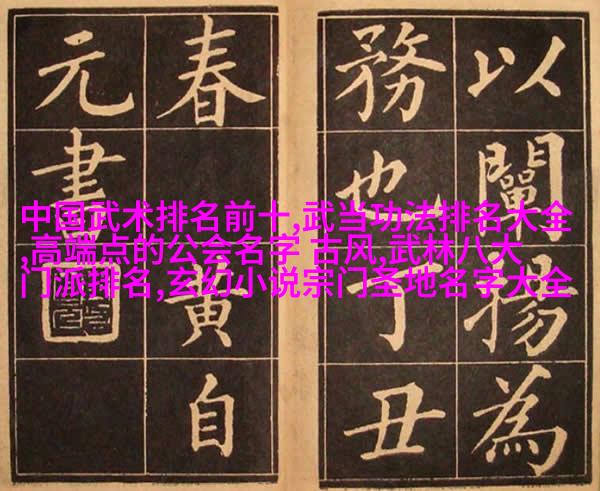 以闡揚為
務也丁丑
春黄自
元書
中国武术排名前十,武当功法排名大全
,高端点的公会名字 古风,武林八大
门派排名,玄幻小说宗门圣地名字大全